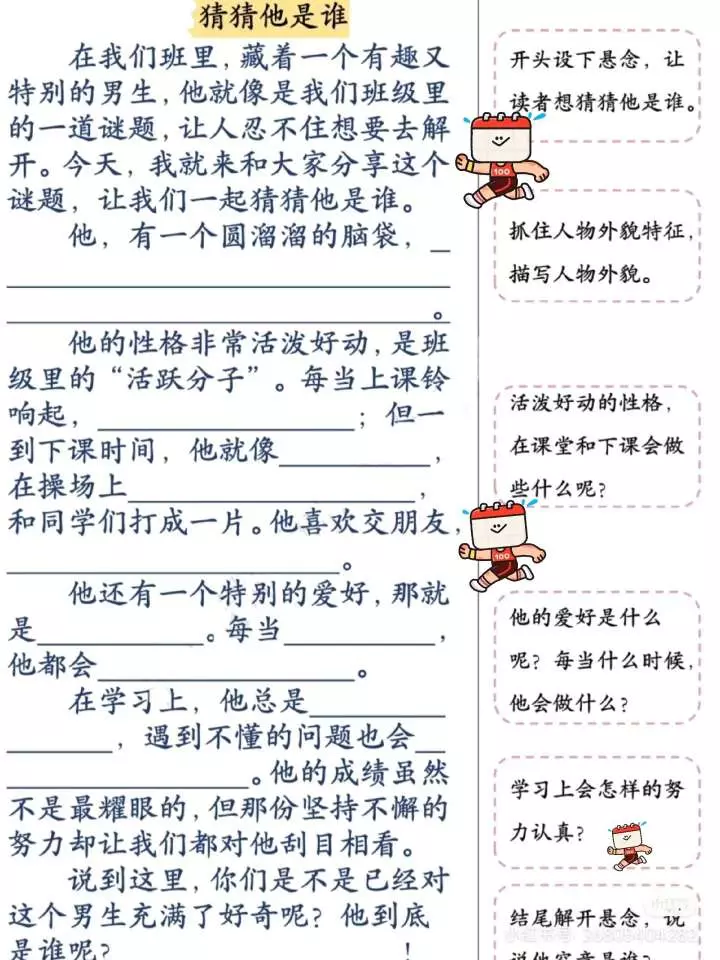 猜猜他是谁
在我们班里，藏着一个有趣又
特别的男生，他就像是我们班级里
的一道谜题，让人忍不住想要去解
开。今天，我就来和大家分享这个
谜题，让我们一起猜猜他是谁。
他，有一个圆溜溜的脑袋，__
______________________
______________________。
他的性格非常活泼好动，是班
级里的“活跃分子”。每当上课铃
响起，______________；但一
到下课时间，他就像________，
在操场上______________，
和同学们打成一片。他喜欢交朋友，
________________。
他还有一个特别的爱好，那就
是________。每当________，
他都会____________。
在学习上，他总是________
______，遇到不懂的问题也会__
____________。他的成绩虽然
不是最耀眼的，但那份坚持不懈的
努力却让我们都对他刮目相看。
说到这里，你们是不是已经对
这个男生充满了好奇呢？他到底
是谁呢？______________！
开头设下悬念，让
读者想猜猜他是谁。
100
抓住人物外貌特征，
描写人物外貌。
活泼好动的性格，
在课堂和下课会做
些什么呢？
100
他的爱好是什么
呢？每当什么时候，
他会做什么？
学习上会怎样的努
力认真？
结尾解开悬念，说
说他究竟是谁？
小红书